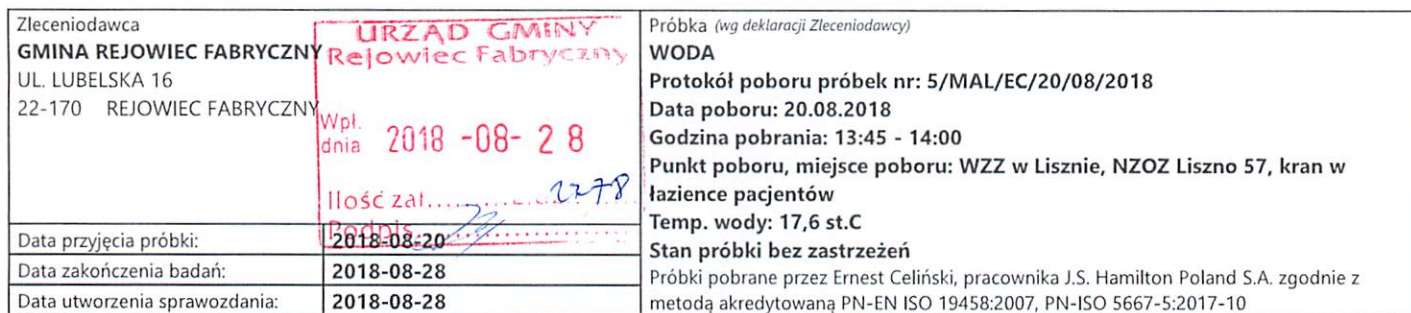 Zleceniodawca
GMINA REJOWIEC FABRYCZNY
UL. LUBELSKA 16
22-170 REJOWIEC FABRYCZNY
URZĄD GMINY
Rejowiec Fabryczny
Wpł.
dnia 2018 -08- 2 8
Ilość zał. 2278
Podpis
Data przyjęcia próbki: 2018-08-20
Data zakończenia badań: 2018-08-28
Data utworzenia sprawozdania: 2018-08-28
Próbka (wg deklaracji Zleceniodawcy)
WODA
Protokół poboru próbek nr: 5/MAL/EC/20/08/2018
Data poboru: 20.08.2018
Godzina pobrania: 13:45 - 14:00
Punkt poboru, miejsce poboru: WZZ w Lisznie, NZOZ Liszno 57, kran w
łazience pacjentów
Temp. wody: 17,6 st.C
Stan próbki bez zastrzeżeń
Próbki pobrane przez Ernest Celiński, pracownika J.S. Hamilton Poland S.A. zgodnie z
metodą akredytowaną PN-EN ISO 19458:2007, PN-ISO 5667-5:2017-10